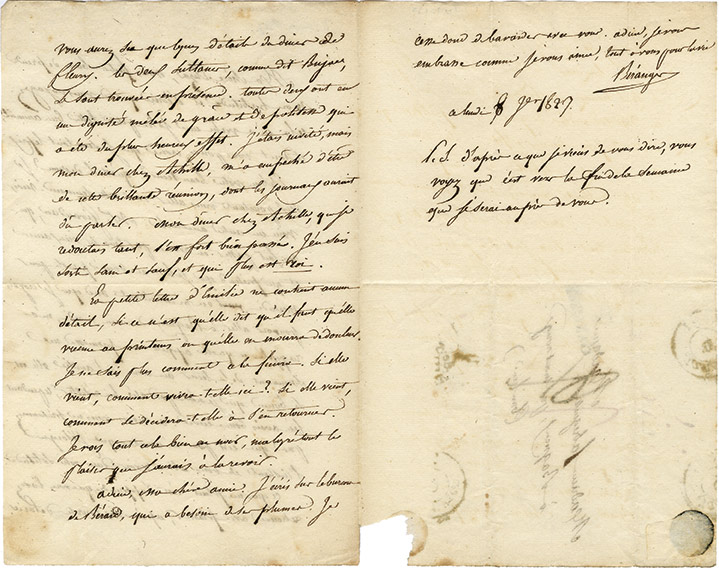 vous aurez su quelques détails du diner de
Cleury. les deux sultanes, comme dit
se sont trouvées en présence. toutes deux ont eu
une dignité mêlée de grâce et de politesse qui
a été du plus heureux effet. J'étais invité, mais
mon diner chez Achille, m'a empêché d'être
de cette brillante réunion, dont les journaux auront
dû parler. mon diner chez Achille, que je
redoutais tant, s'est fort bien passé. J'en suis
sorti sain et sauf, et qui plus est roi.
La petite lettre d'Emilie ne contient aucun
détail, si ce n'est qu'elle dit qu'il faut qu'elle
vienne au printems ou qu'elle en mourra de douleur.
Je ne sais plus comment a le finir. Si elle
vient, comment vivra-t-elle ici? Si elle vient,
comment se décidera-t-elle à s'en retourner.
Je vois tout cela bien au noir, malgré tout le
plaisir que j'aurais à la revoir.
adieu, ma chère amie. J'écris sur le bureau
de Bérard, qui a besoin de ses plumes. Je
cesse donc de bavarder avec vous. adieu je vous
embrasse comme je vous aime, tout à vous pour la vie
Béranger
a lundi 8 Jer 1827.
P.S. d'après ce que je viens de vous dire, vous
voyez que c'est vers la fin de la semaine
que je serai auprès de vous.